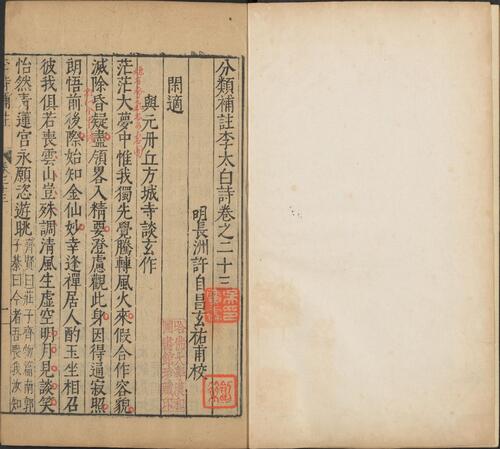 分類補註李太白詩卷之二十三
明長洲許自昌玄祐甫校
閑適
與元丹丘方城寺談玄作
茫茫大夢中惟我獨先覺騰轉風火來假合作容貌
滅除昏疑盡領畧入精要澄慮觀此身因得通寂照
朗悟前後際始知金仙妙幸逢禪居人酌玉坐相召
彼我俱若喪雲山豈殊調清風生虛空明月見談笑
怡然青蓮宮永願恣遊眺
齊賢曰莊子齊物篇南郭
子綦曰今者吾喪我汝知